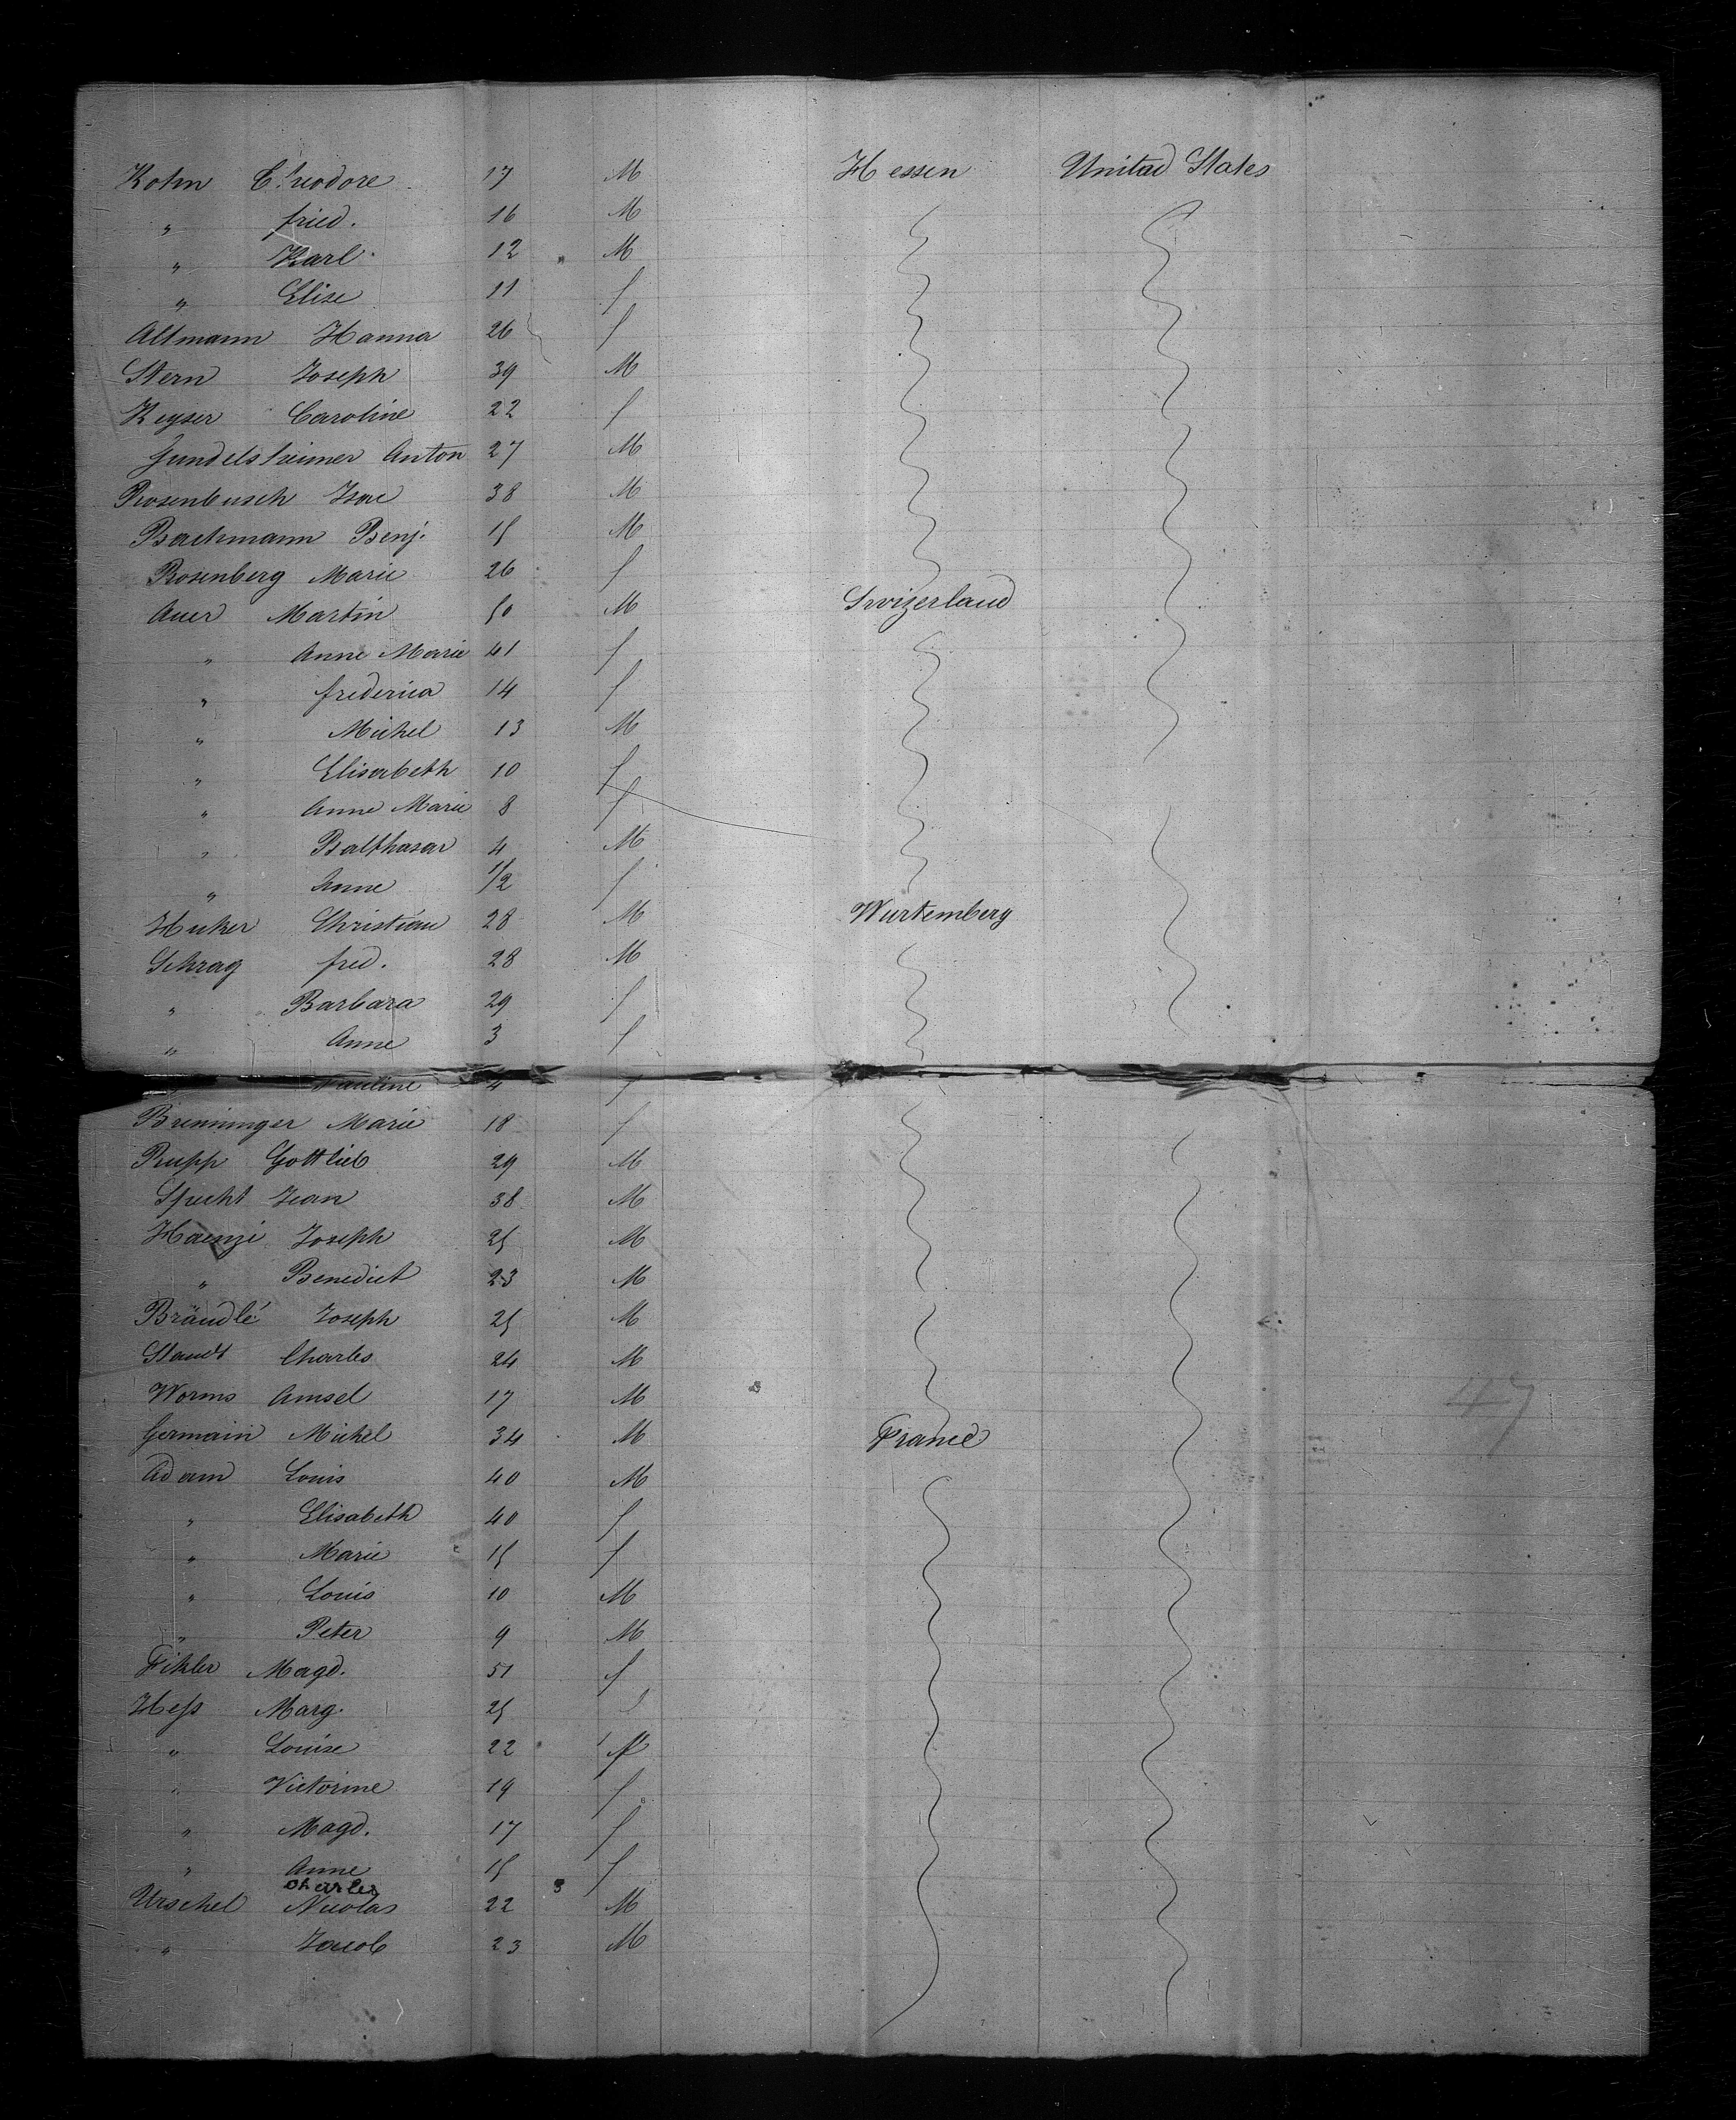 Kohn Theodore 17 M Hessen United States
" fried. 16 M
" Karl 12 M
" Elise 11 f
Altmann Hanna 26 f
Stern Joseph 39 M
Keyser Caroline 22 f
Gundelsheimer Anton 27 M
Rosenbusch Isac 38 M
Bachmann Benj. 15 M
Rosenberg Marie 26 f
Auer Martin 50 M Swizerland
" Anne Marie 41 f
" frederica 14 f
" Michel 13 M
" Elisabeth 10 f
" Anne Marie 8 f
" Balthasar 4 M
" Anne 1/2 f
Huker Christian 28 M Wurtemberg
Schrag fred. 28 M
" Barbara 29 f
" Anne 3 f
Pauline 4 f
Brenninger Marie 18 f
Rupp Gottlieb 29 M
Specht Jean 38 M
Haenzi Joseph 25 M
" Benedict 23 M
Brändlé Joseph 25 M
Staudt Charles 24 M
Worms Amsel 17 M
47
Germain Michel 34 M France
Adam Louis 40 M
" Elisabeth 40 f
" Marie 15 f
" Louis 10 M
" Peter 9 M
Fikler Magd. 51 f
Hess Marg. 25
" Louise 22 f
" Victorine 19 f
" Magd. 17 f
" Anne 15 f
Charles
Urschel Nicolas 22 M
" Jacob 23 M